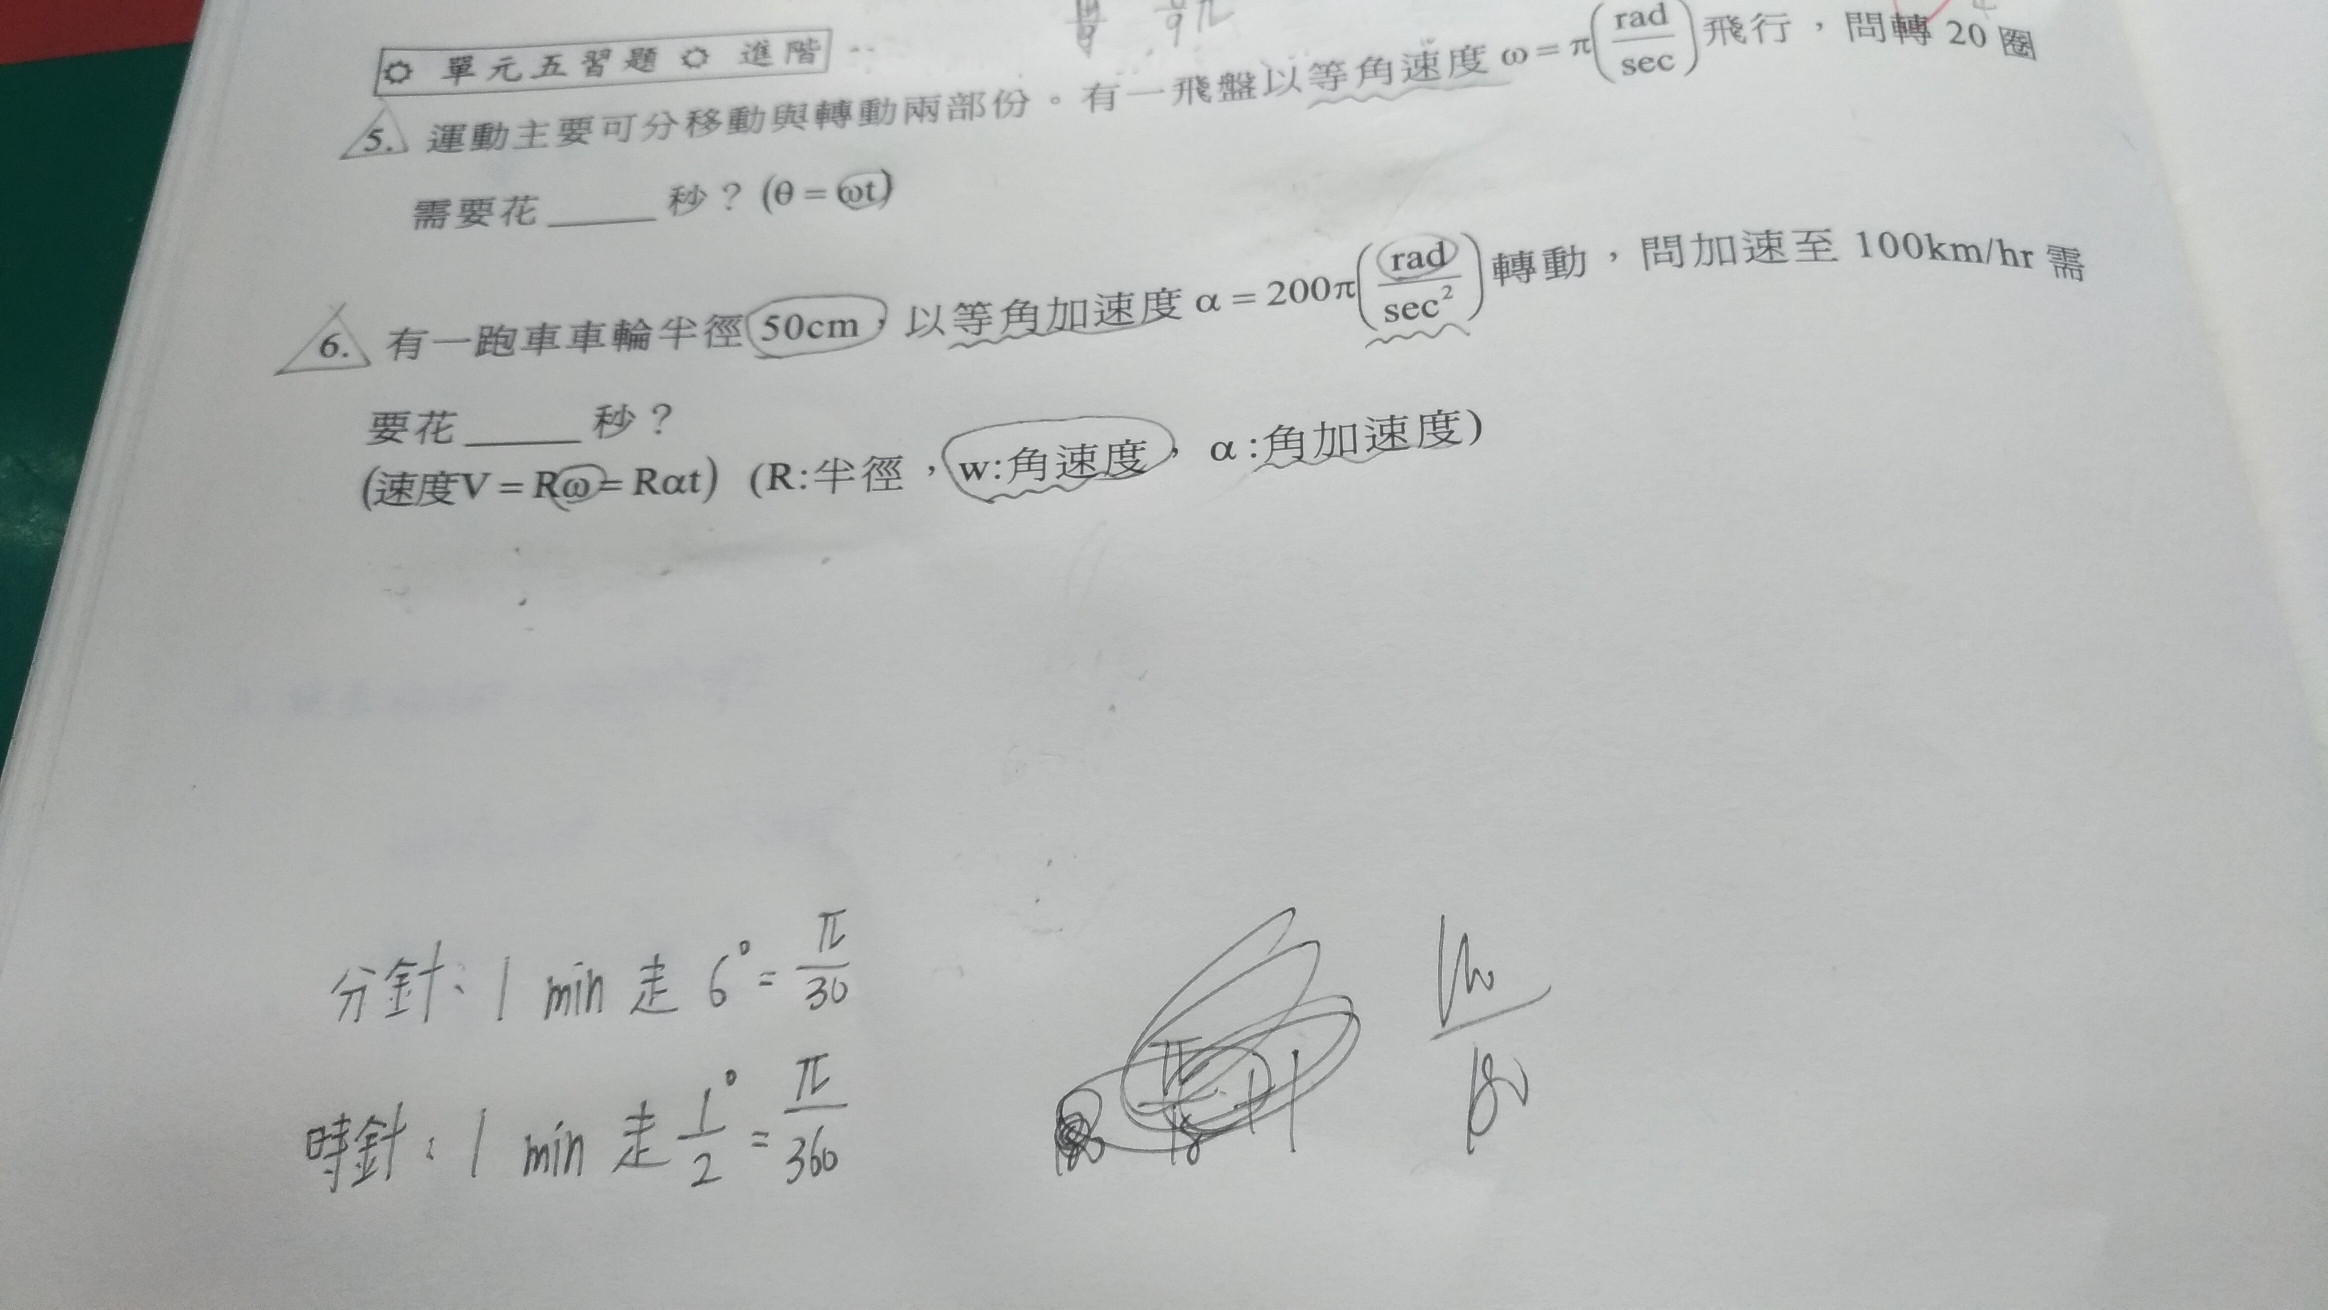 單元五習題 進階
5. 運動主要可分移動與轉動兩部份。有一飛盤以等角速度 ω = π(rad/sec) 飛行，問轉 20 圈
需要花_____秒？(θ = ωt)
6. 有一跑車車輪半徑 50cm，以等角加速度 α = 200π(rad/sec²) 轉動，問加速至 100km/hr 需
要花_____秒？
(速度V = Rω = Rαt) (R:半徑，w:角速度，α:角加速度)
分針: 1 min 走 6° = π/30
時針: 1 min 走 1/2° = π/360